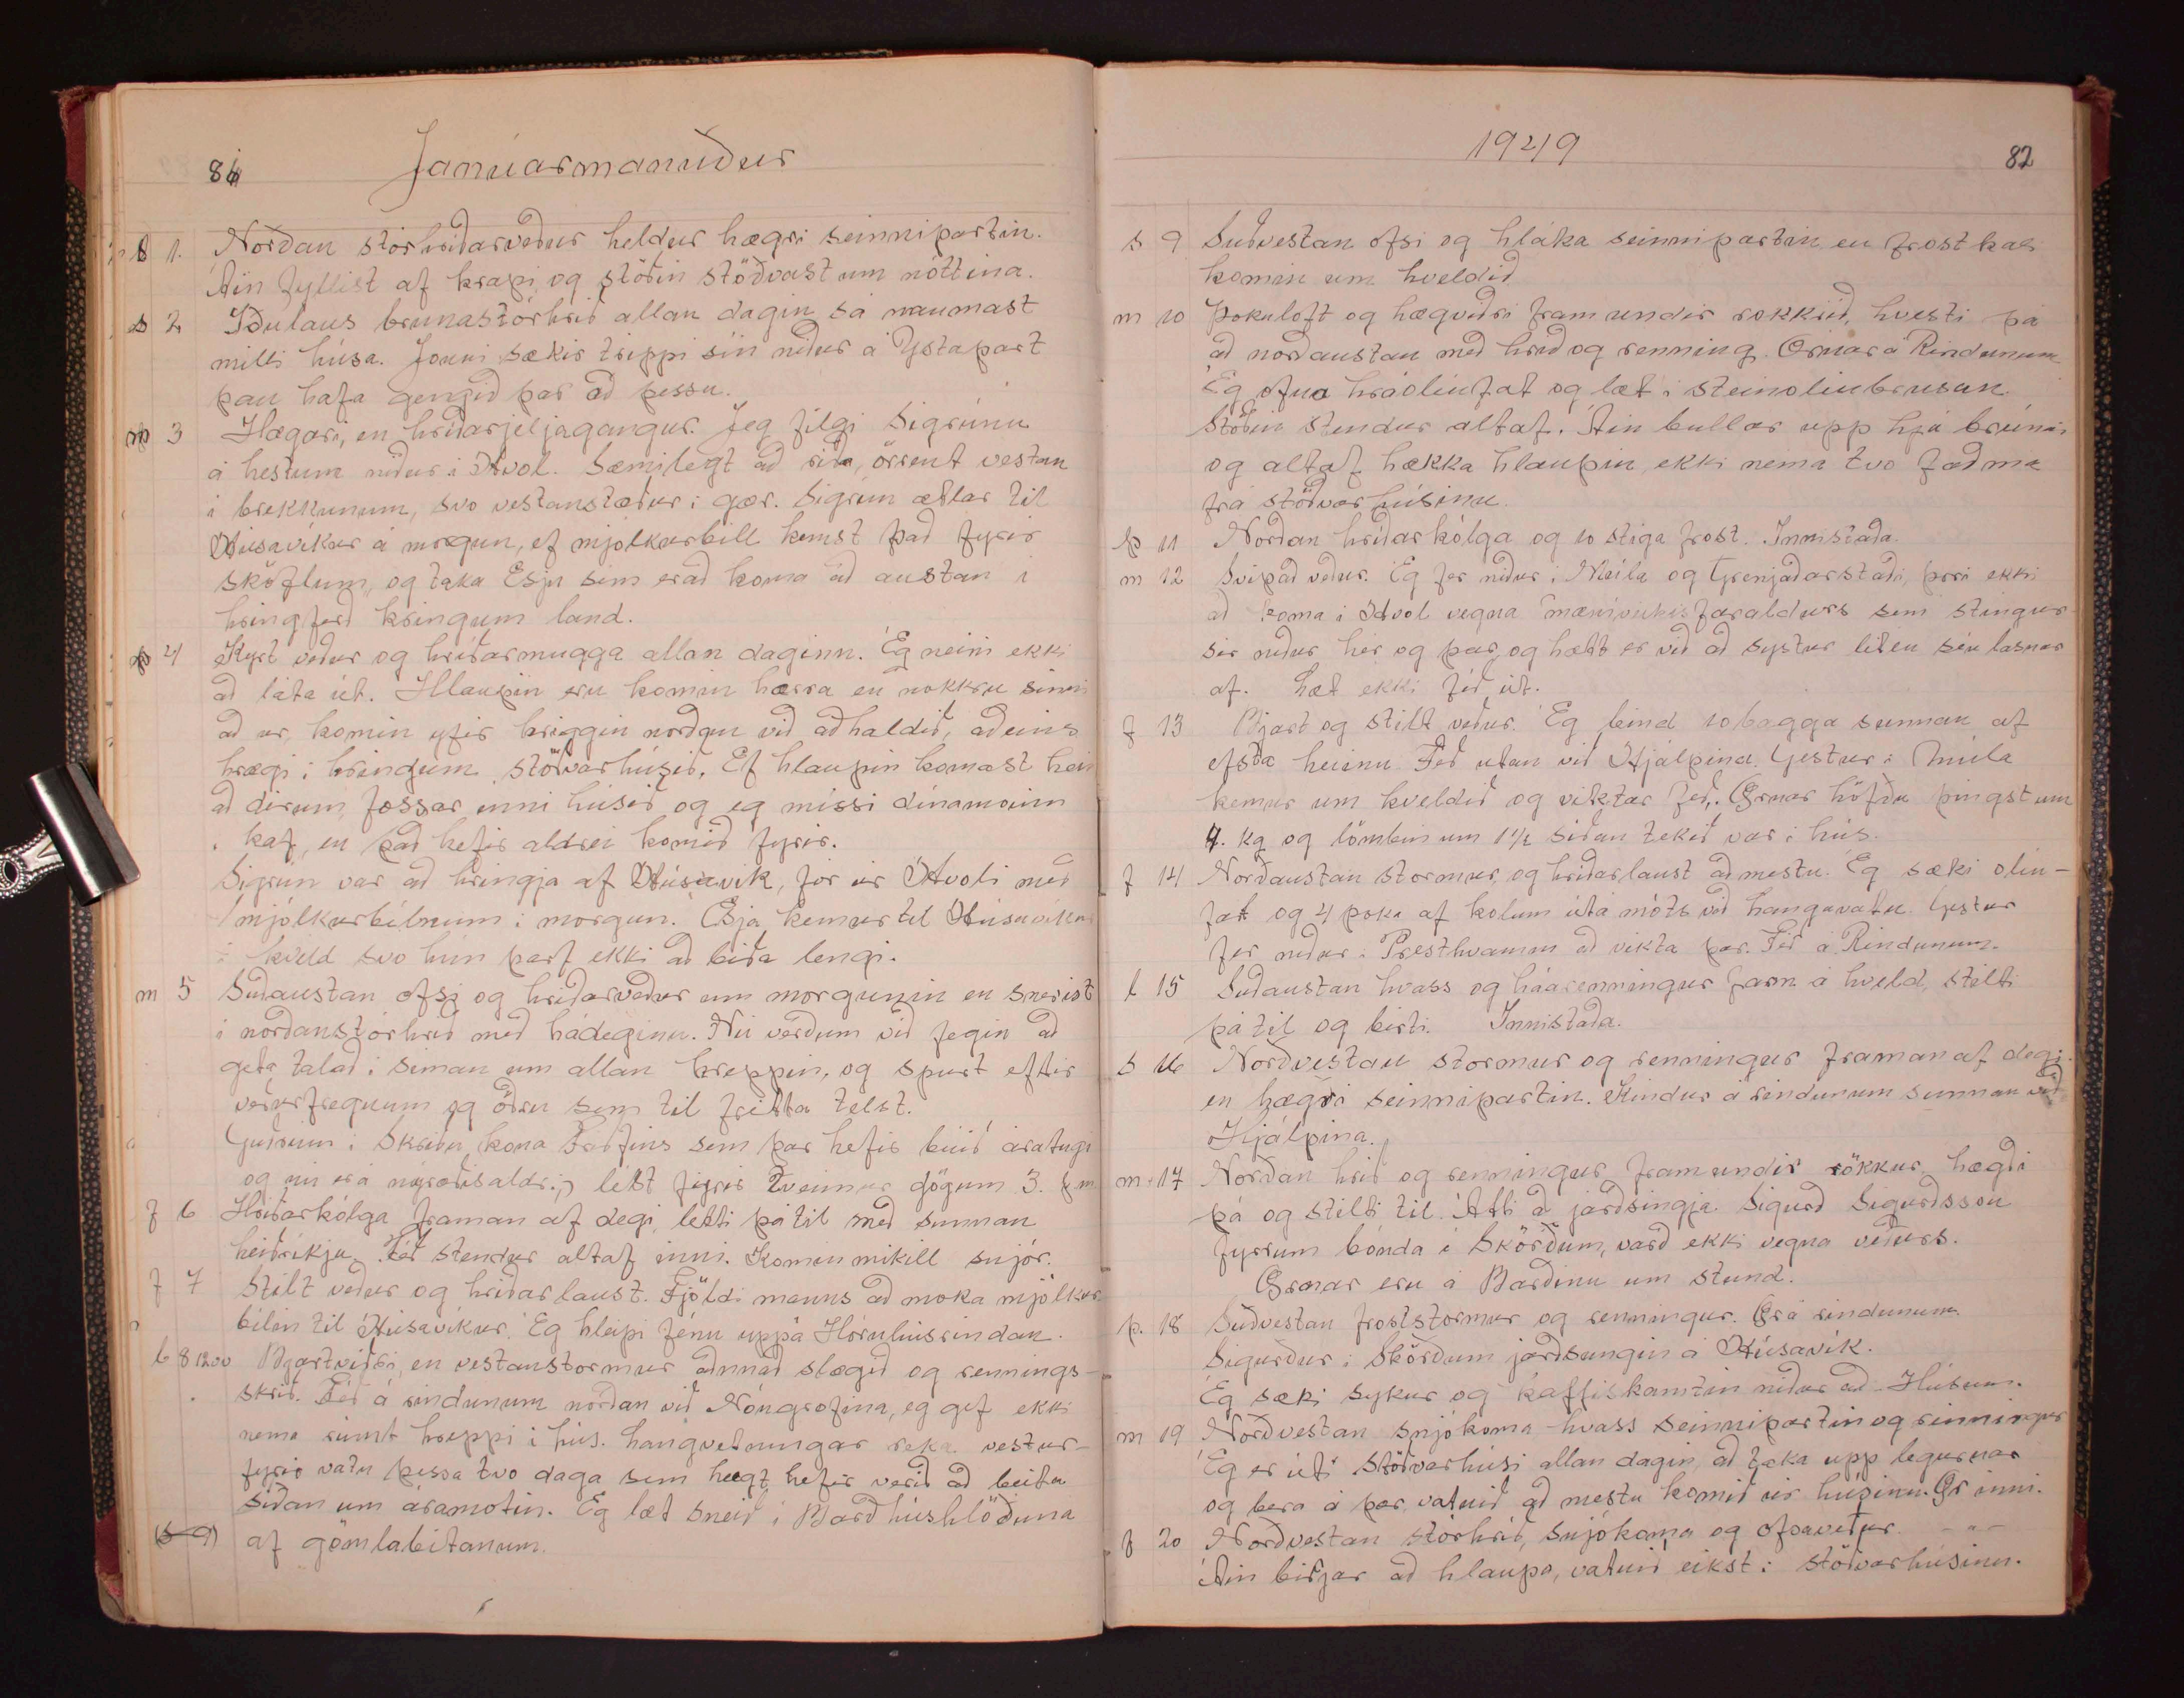 81 Janúarmánuður
l 1. Norðan stórhríðarveður heldur hægri seinnipartin.
Áin fyllist af krapi og stöðin stöðvast um nóttina.
s 2 Iðulaus brunastórhríð allan dagin sá naumast
milli húsa. Jonni sækir trippi sín niður á Ystapart
þau hafa gengið þar að þessu.
m 3 Hægari, en hríðarjeljagangur. Jeg filgi Sigrúnu
á hestum niður í Hvol. Sæmilegt að ríða, örrent vestan
í brekkunum, svo vestanstæður í gær. Sigrún ætlar til
Húsavíkur á morgun, ef mjólkurbill kemst það fyrir
sköflum, og taka Esju sem er að koma að austan í
hringferð kringum land.
þ 4 Kyrt veður og hríðarmugga allan daginn. Eg nenni ekki
að láta út. Hlaupin eru komin hærra en nokkru sinni
að ur, komin yfir hriggin norðan við aðhaldið, aðeins
hrægi í kringum stöðvarhúsið. Ef hlaupin komast heim
að dirum, fossar inní húsið og eg missi dínamoinn
í kaf, en það hefir aldrei komið fyrir.
Sigrun var að hringja af Húsavík, fór úr Hvoli með
mjólkurbílnum í morgun. Esja kemur til Húsavíkur
í kveld svo hún þarf ekki að bíða lengi.
m 5 Suðaustan ofsi og hríðarveður um morgunin en snerist
í norðanstórhríð með hádeginu. Nú verðum við fegin að
geta talað í síman um allan hreppin, og spurt eftir
veðurfregnum og öðru sem til frétta telst.
Guðrún í Skriðu kona Þorfins sem þar hefir búið áratugi
og nú er á níræðisaldri, lést fyrir tveimur dögum 3. þ.m
f 6 Hríðarkólga framan af degi, létti þá til með sunnan
heiðríkju. Féð stendur altaf inni. Komin mikill snjór.
f 7 Stilt veður og hríðarlaust. Fjöldi manns að moka mjólkur
bílin til Húsavíkur. Eg hleipi fénu uppá Hornhúsrindan.
l 8 1200 Bjartviðri, en vestanstormur annað slagið og rennings-
skrið. Féð á rindunum norðan við Nóngrófina, eg gef ekki
nema rúmt hreppi í hús. hangvetningar reka vestur-
fyrir vatn þessa tvo daga sem hægt hefir verið að beita
síðan um áramótin. Eg læt sneið í Barðhúshlöðuna
(s 9) af gömlabitanum.
1949 82
s 9 Suðvestan ofsi og hláka seinnipartin en frost kali
komin um kveldið
m 10 Þokuloft og hægviðri fram undir rokkrið, hvesti þá
að norðaustan með hríð og renning. Ærnar á Rindunum
Eg ofna hráolíufat og læt í steinolíubrusan.
Stöðin stendur altaf. Áin bullar upp hjá brúnni
og altaf hækka hlaupin ekki nema tvo faðma
frá stöðvarhúsinu.
þ 11 Norðan hríðarkólga og 10 stiga frost. Innistaða.
m 12 Svipað veður. Eg fer niður í Múla og Grenjaðarstaði, þori ekki
að koma í Hvol vegna mænuveikisfaraldurs sem stingur
sér niður hér og þar, og hætt er við að systur litlu séu lasnar
af. Læt ekki féð út.
f 13 Bjart og stilt veður. Eg bind 10 bagga sunnan af
efsta heiinu Féð utan við Hjálpina. Gestur í Múla
kemur um kveldið og viktar féð. Ærnar höfðu þingst um
4. kg og lömbin um 1½ síðan tekið var í hús.
f 14 Norðaustan stormur og hríðarlaust að mestu. Eg sæki olíu-
fat og 4 poka af kolum útá móts við hangavatn. Gestur
fer niður í Presthvamm að vikta þar. Féð á Rindunum.
l 15 Suðaustan hvass og háarenningur fram á kveld, stilti
þá til og birti. Innistaða.
s 16 Norðvestan stormur og renningur framan af degi
en hægði seinnipartin. Kindur á rindunum sunnan við
Hjálpina.
m 17 Norðan hríð og renningur fram undir rökkur, hægði
þá og stilti til. Átti að jarðsingja Sigurð Sigurðsson
fyrrum bónda í Skörðum, varð ekki vegna veðurs.
Ærnar eru á Barðinu um stund.
þ. 18 Suðvestan froststormur og renningur. Ær á rindunum
Sigurður í Skörðum jarðsunginn á Húsavík.
Eg sæki sykur og kaffiskamtin niður að Húsum.
m 19 Norðvestan snjókoma - hvass seinnipartin og renningur
Eg er útí stöðvarhúsi allan dagin, að taka upp legurnar
og bera á þær, vatnið að mestu komið úr húsinu. Ær inni.
f 20 Norðvestan stórhríð, snjókoma og ofsaveður. -"-
Áin birjar að hlaupa, vatnið eikst í stöðvarhúsinu.